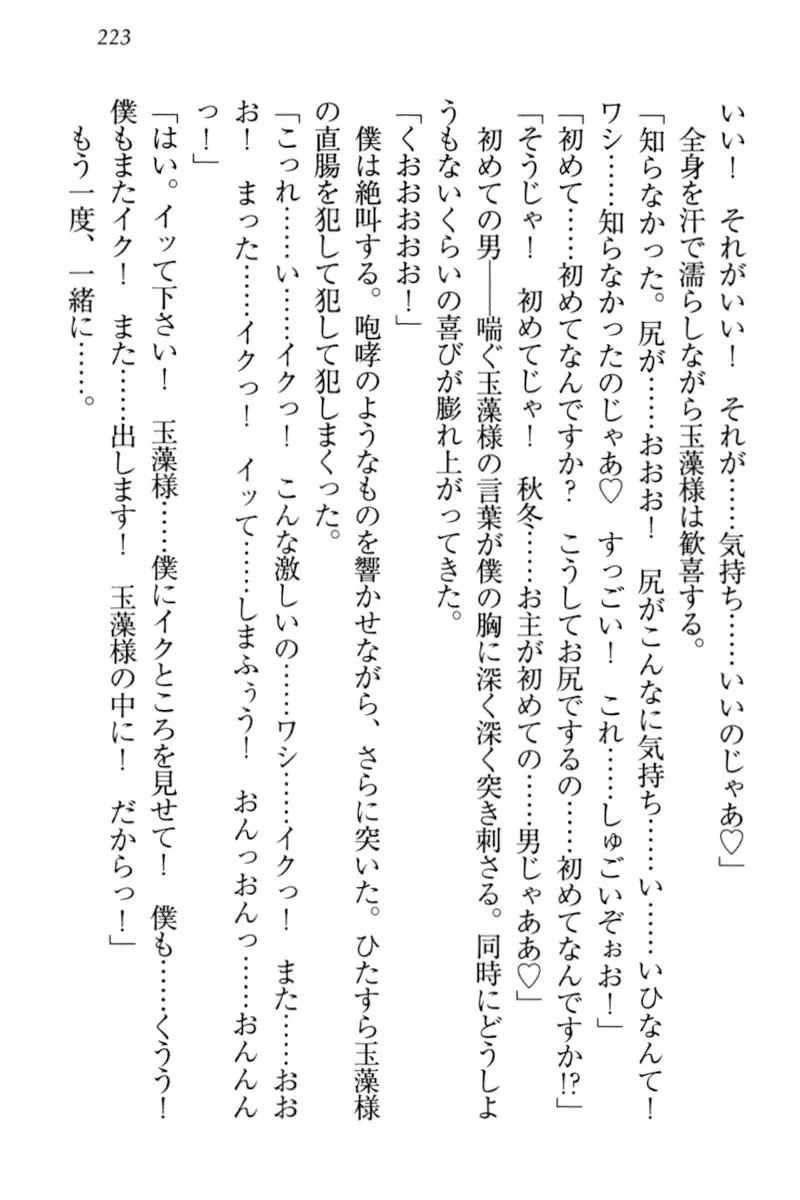 223
いい！　それがいい！　それが……気持ち……いいのじゃあ♡」
　全身を汗で濡らしながら玉藻様は歓喜する。
「知らなかった。尻が……おおお！　尻がこんなに気持ち……い……いひなんて！
ワシ……知らなかったのじゃあ♡　すっごい！　これ……しゅごいぞぉお！」
「初めて……初めてなんですか？　こうしてお尻でするの……初めてなんですか!?」
「そうじゃ！　初めてじゃ！　秋冬……お主が初めての……男じゃああ♡」
　初めての男――喘ぐ玉藻様の言葉が僕の胸に深く深く突き刺さる。同時にどうしよ
うもないくらいの喜びが膨れ上がってきた。
「くおおおおお！」
　僕は絶叫する。咆哮のようなものを響かせながら、さらに突いた。ひたすら玉藻様
の直腸を犯して犯して犯しまくった。
「こっれ……い……イクっ！　こんな激しいの……ワシ……イクっ！　また……おお
お！　まった……イクっ！　イッて……しまふぅう！　おんっおんっ……おんんん
っ！」
「はい。イッて下さい！　玉藻様……僕にイクところを見せて！　僕も……くうう！
僕もまたイク！　また……出します！　玉藻様の中に！　だからっ！」
　もう一度、一緒に……。